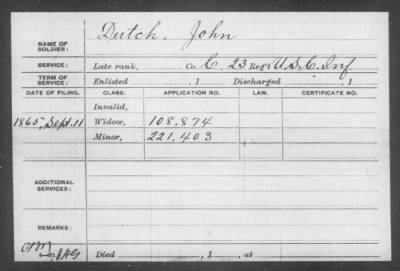 NAME OF SOLDIER: Dutch, John
SERVICE: Late rank, Co. C, 23 Reg't U.S.C. Inf.
TERM OF SERVICE: Enlisted , 1 Discharged , 1
DATE OF FILING. CLASS. APPLICATION NO. LAW. CERTIFICATE NO.
Invalid,
1865, Sept. 11 Widow, 108.874
Minor, 221.403
ADDITIONAL SERVICES:
REMARKS:
Died , 1 , at